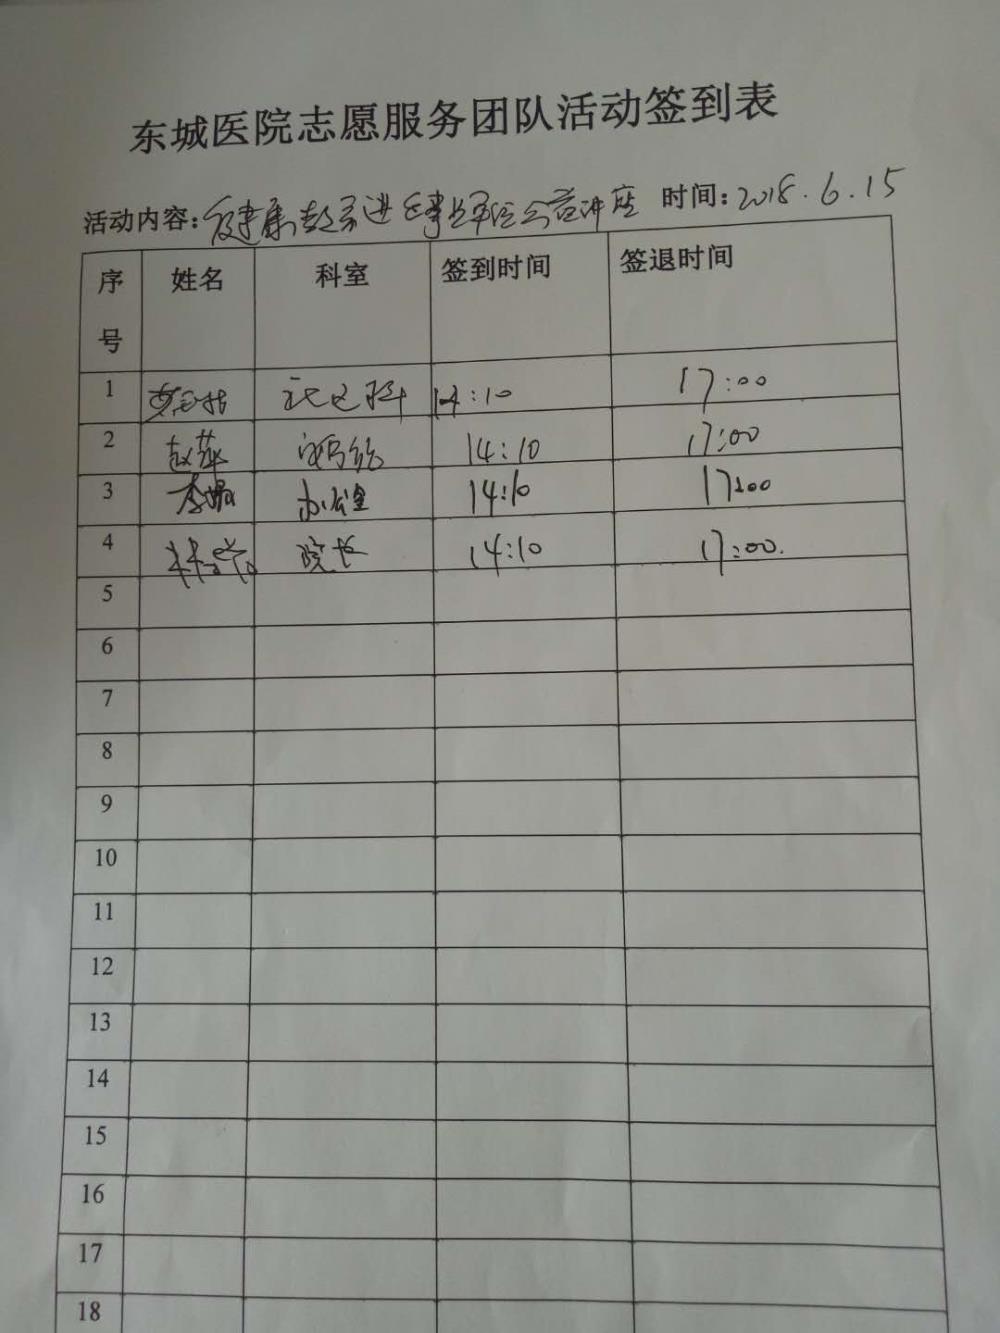 东城医院志愿服务团队活动签到表
活动内容: 健康 进 事业单位公益讲座 时间: 2018.6.15
序号 姓名 科室 签到时间 签退时间
1 14:10 17:00
2 赵萍 14:10 17:00
3 李 办公室 14:10 17:00
4 林 院长 14:10 17:00.
5
6
7
8
9
10
11
12
13
14
15
16
17
18